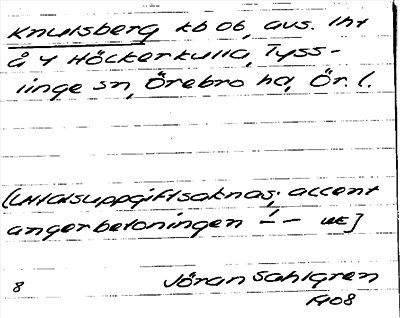 Knutsberg kb 06, avs. lht
å 4 Höckerkulla, Tyss-
linge sn, Örebro hd, Ör. l.
(Uttalsuppgift saknas; accent
anger betoningen
Jöran Sahlgren
8
1908